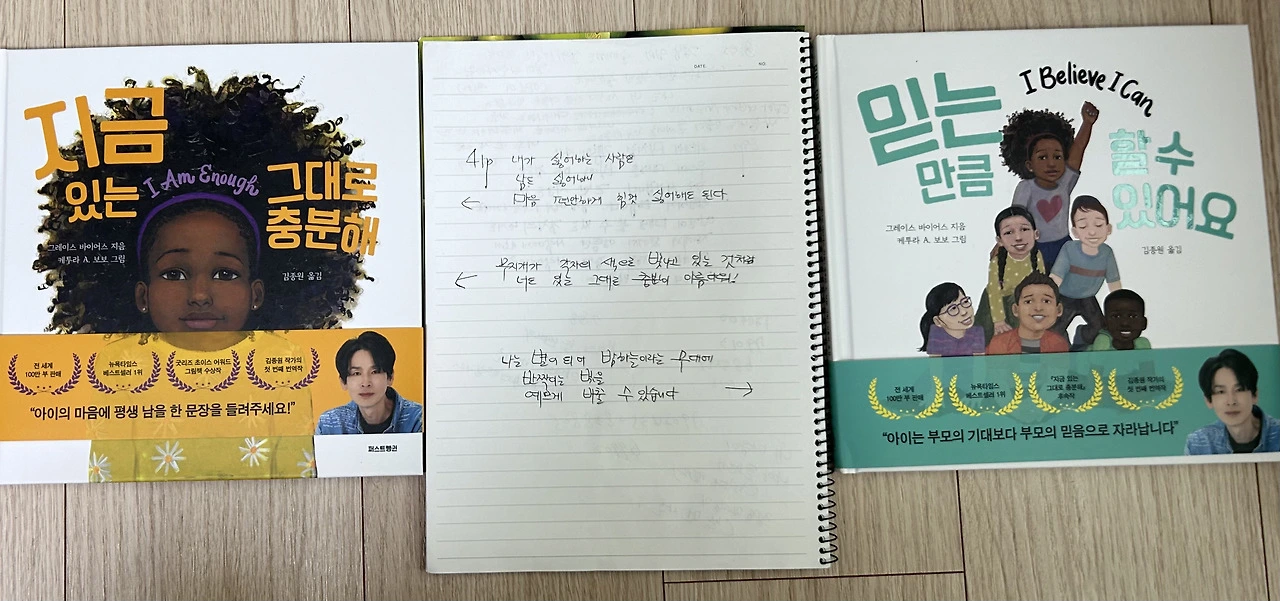 지금
있는
I Am Enough
그대로
충분해
그레이스 바이어스 지음
케투라 A. 보보 그림
김종원 옮김
전 세계
100만 부 판매
뉴욕타임스
베스트셀러 1위
굿리즈 초이스 어워드
그림책 수상작
김종원 작가의
첫 번째 번역작
“아이의 마음에 평생 남을 한 문장을 들려주세요!”
퍼스트펭귄
DATE
NO.
41p 내가 싫어하는 사람은
남도 싫어해
마음 편안하게 힘껏 싫어해도 된다
←
무지개가 각자의 색으로 빛나고 있는 것처럼
너도 있는 그대로 충분히 아름다워!
←
나는 별이 되어 밤하늘이라는 무대에
반짝이는 빛을
예쁘게 비출 수 있습니다
→
믿는
만큼
I Believe I Can
할 수
있어요
그레이스 바이어스 지음
케투라 A. 보보 그림
김종원 옮김
전 세계
100만 부 판매
뉴욕타임스
베스트셀러 1위
『지금 있는
그대로 충분해』
후속작
김종원 작가의
첫 번째 번역작
“아이는 부모의 기대보다 부모의 믿음으로 자라납니다”